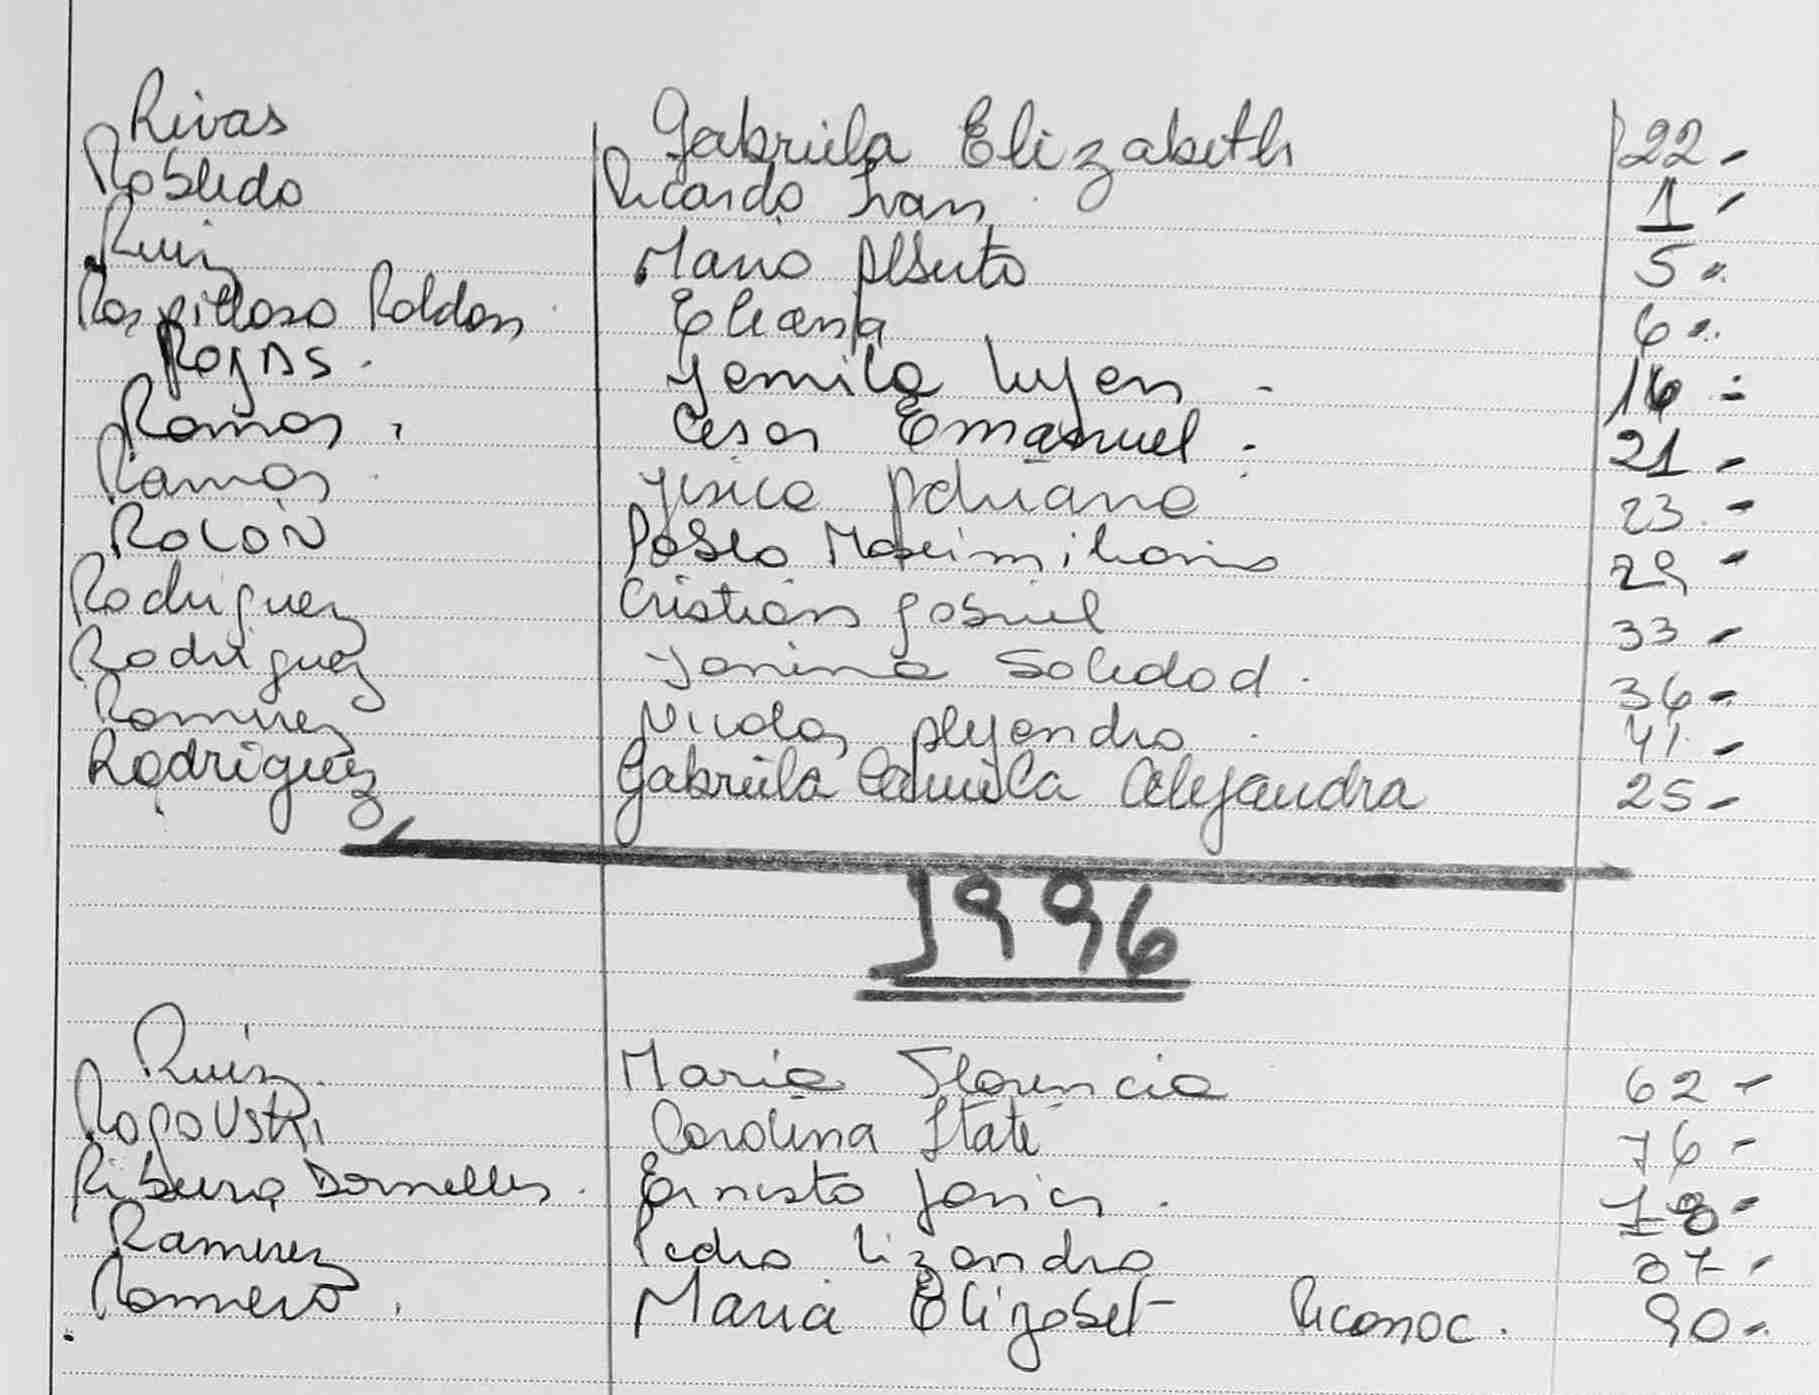 Rivas Gabriela Elizabeth 22
Robledo Ricardo Ivan 1
Ruiz Mario Alberto 5
Raspilloso Roldan Eliana 6
Rojas Yemila Luyen 16
Ramos Cesar Emanuel 21
Ramos Yesica Adriana 23
Rolón Pablo Maximiliano 29
Rodriguez Cristian Gabriel 33
Rodriguez Yanina Soledad 36
Ramirez Nicolas Alejandro 41
Rodriguez Gabriela Camila Alejandra 25
1996
Ruiz Maria Florencia 62
Rogovski Carolina Itatí 76
Ribeiro Dornelles Ernesto Javier 18
Ramirez Pedro Lizandro 87
Romero Maria Elizabet Reconoc. 90